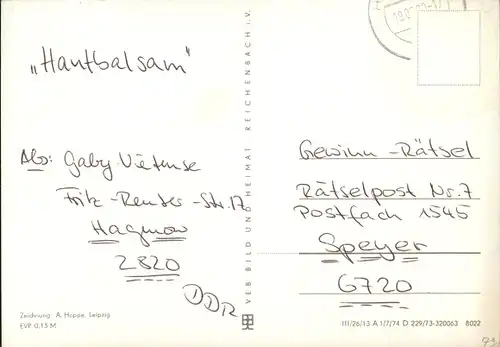 „Hautbalsam"
Abs: Gaby Vietense
Fritz-Reuter-Str. 17
Hagenow
2820
DDR
Zeichnung: A. Hoppe, Leipzig
EVP 0,15 M
VEB BILD UND HEIMAT REICHENBACH i. V.
Gewinn-Rätsel
Rätselpost Nr. 7
Postfach 1545
Speyer
6720
III/26/13 A 1/7/74 D 229/73-320063 8022